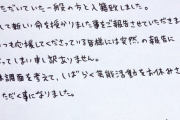 ただいていた一般の方と入籍致しました。
して新しい命を授かりました事をご報告させていただきま
つも応援してくださっている皆様には突然の報告に
ってしまい申し訳ありません。
体調面を考えて、しばらく芸能活動をお休みさ
ただく事になりました。